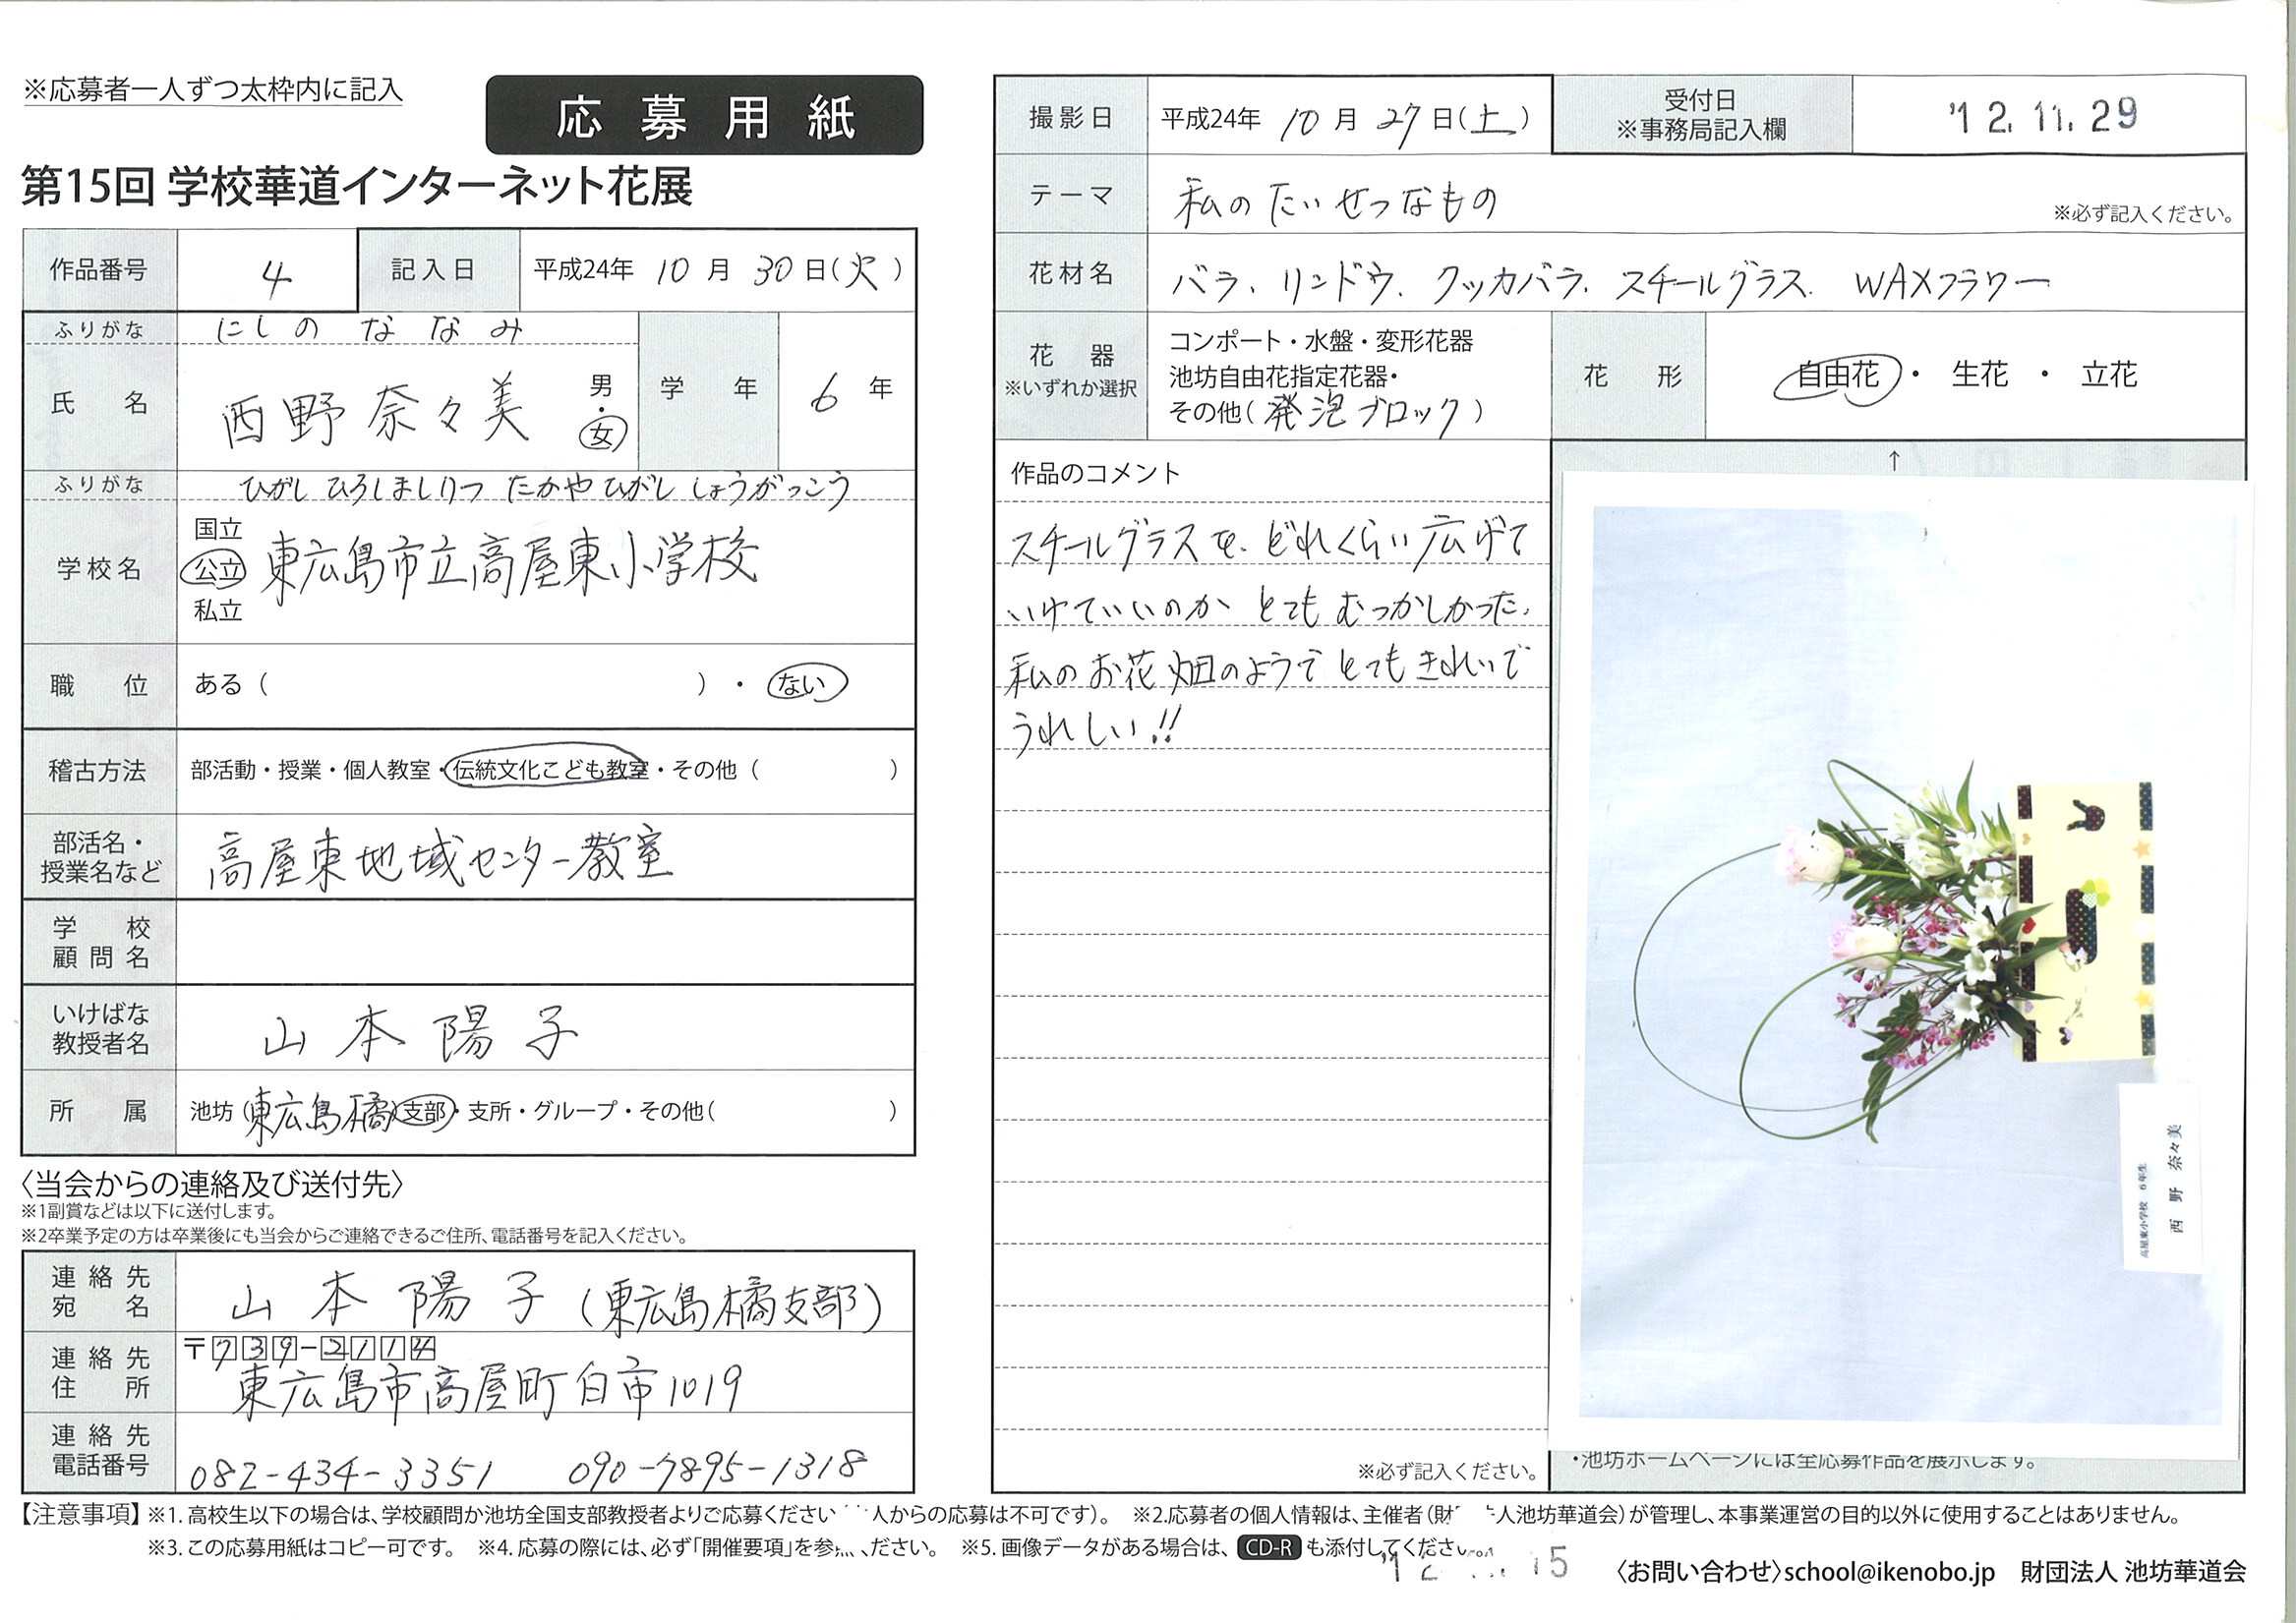 ※応募者一人ずつ太枠内に記入
応募用紙
第15回 学校華道インターネット花展
作品番号 4 記入日 平成24年 10月 30日(火)
ふりがな にしの ななみ
氏名 西野 奈々美 男・女 学年 6年
ふりがな ひがしひろしましりつ たかやひがししょうがっこう
学校名 国立 公立 私立 東広島市立高屋東小学校
職位 ある( )・ない
稽古方法 部活動・授業・個人教室・伝統文化こども教室・その他( )
部活名・授業名など 高屋東地域センター教室
学校顧問名
いけばな教授者名 山本陽子
所属 池坊(東広島橘)支部・支所・グループ・その他( )
〈当会からの連絡及び送付先〉
※1副賞などは以下に送付します。
※2卒業予定の方は卒業後にも当会からご連絡できるご住所、電話番号を記入ください。
連絡先宛名 山本陽子(東広島橘支部)
連絡先住所 〒739-2114
東広島市高屋町白市1019
連絡先電話番号 082-434-3351 090-7895-1318
撮影日 平成24年 10月 27日(土) 受付日 ※事務局記入欄 '12.11.29
テーマ 私のたいせつなもの ※必ず記入ください。
花材名 バラ、リンドウ、クッカバラ、スチールグラス、WAXフラワー
花器 ※いずれか選択 コンポート・水盤・変形花器
池坊自由花指定花器・
その他(発泡ブロック)
花形 自由花・生花・立花
作品のコメント
スチールグラスを、どれくらい広げて
いけていいのか とてもむつかしかった。
私のお花畑のようで とてもきれいで
うれしい!!
※必ず記入ください。
↑
高屋東小学校 6年生
西野 奈々美
・池坊ホームページには全応募作品を展示します。
【注意事項】※1.高校生以下の場合は、学校顧問か池坊全国支部教授者よりご応募ください 人からの応募は不可です)。 ※2.応募者の個人情報は、主催者(財 人池坊華道会)が管理し、本事業運営の目的以外に使用することはありません。
※3.この応募用紙はコピー可です。 ※4.応募の際には、必ず「開催要項」を参 ください。 ※5.画像データがある場合は、CD-Rも添付してください。
〈お問い合わせ〉school@ikenobo.jp 財団法人 池坊華道会